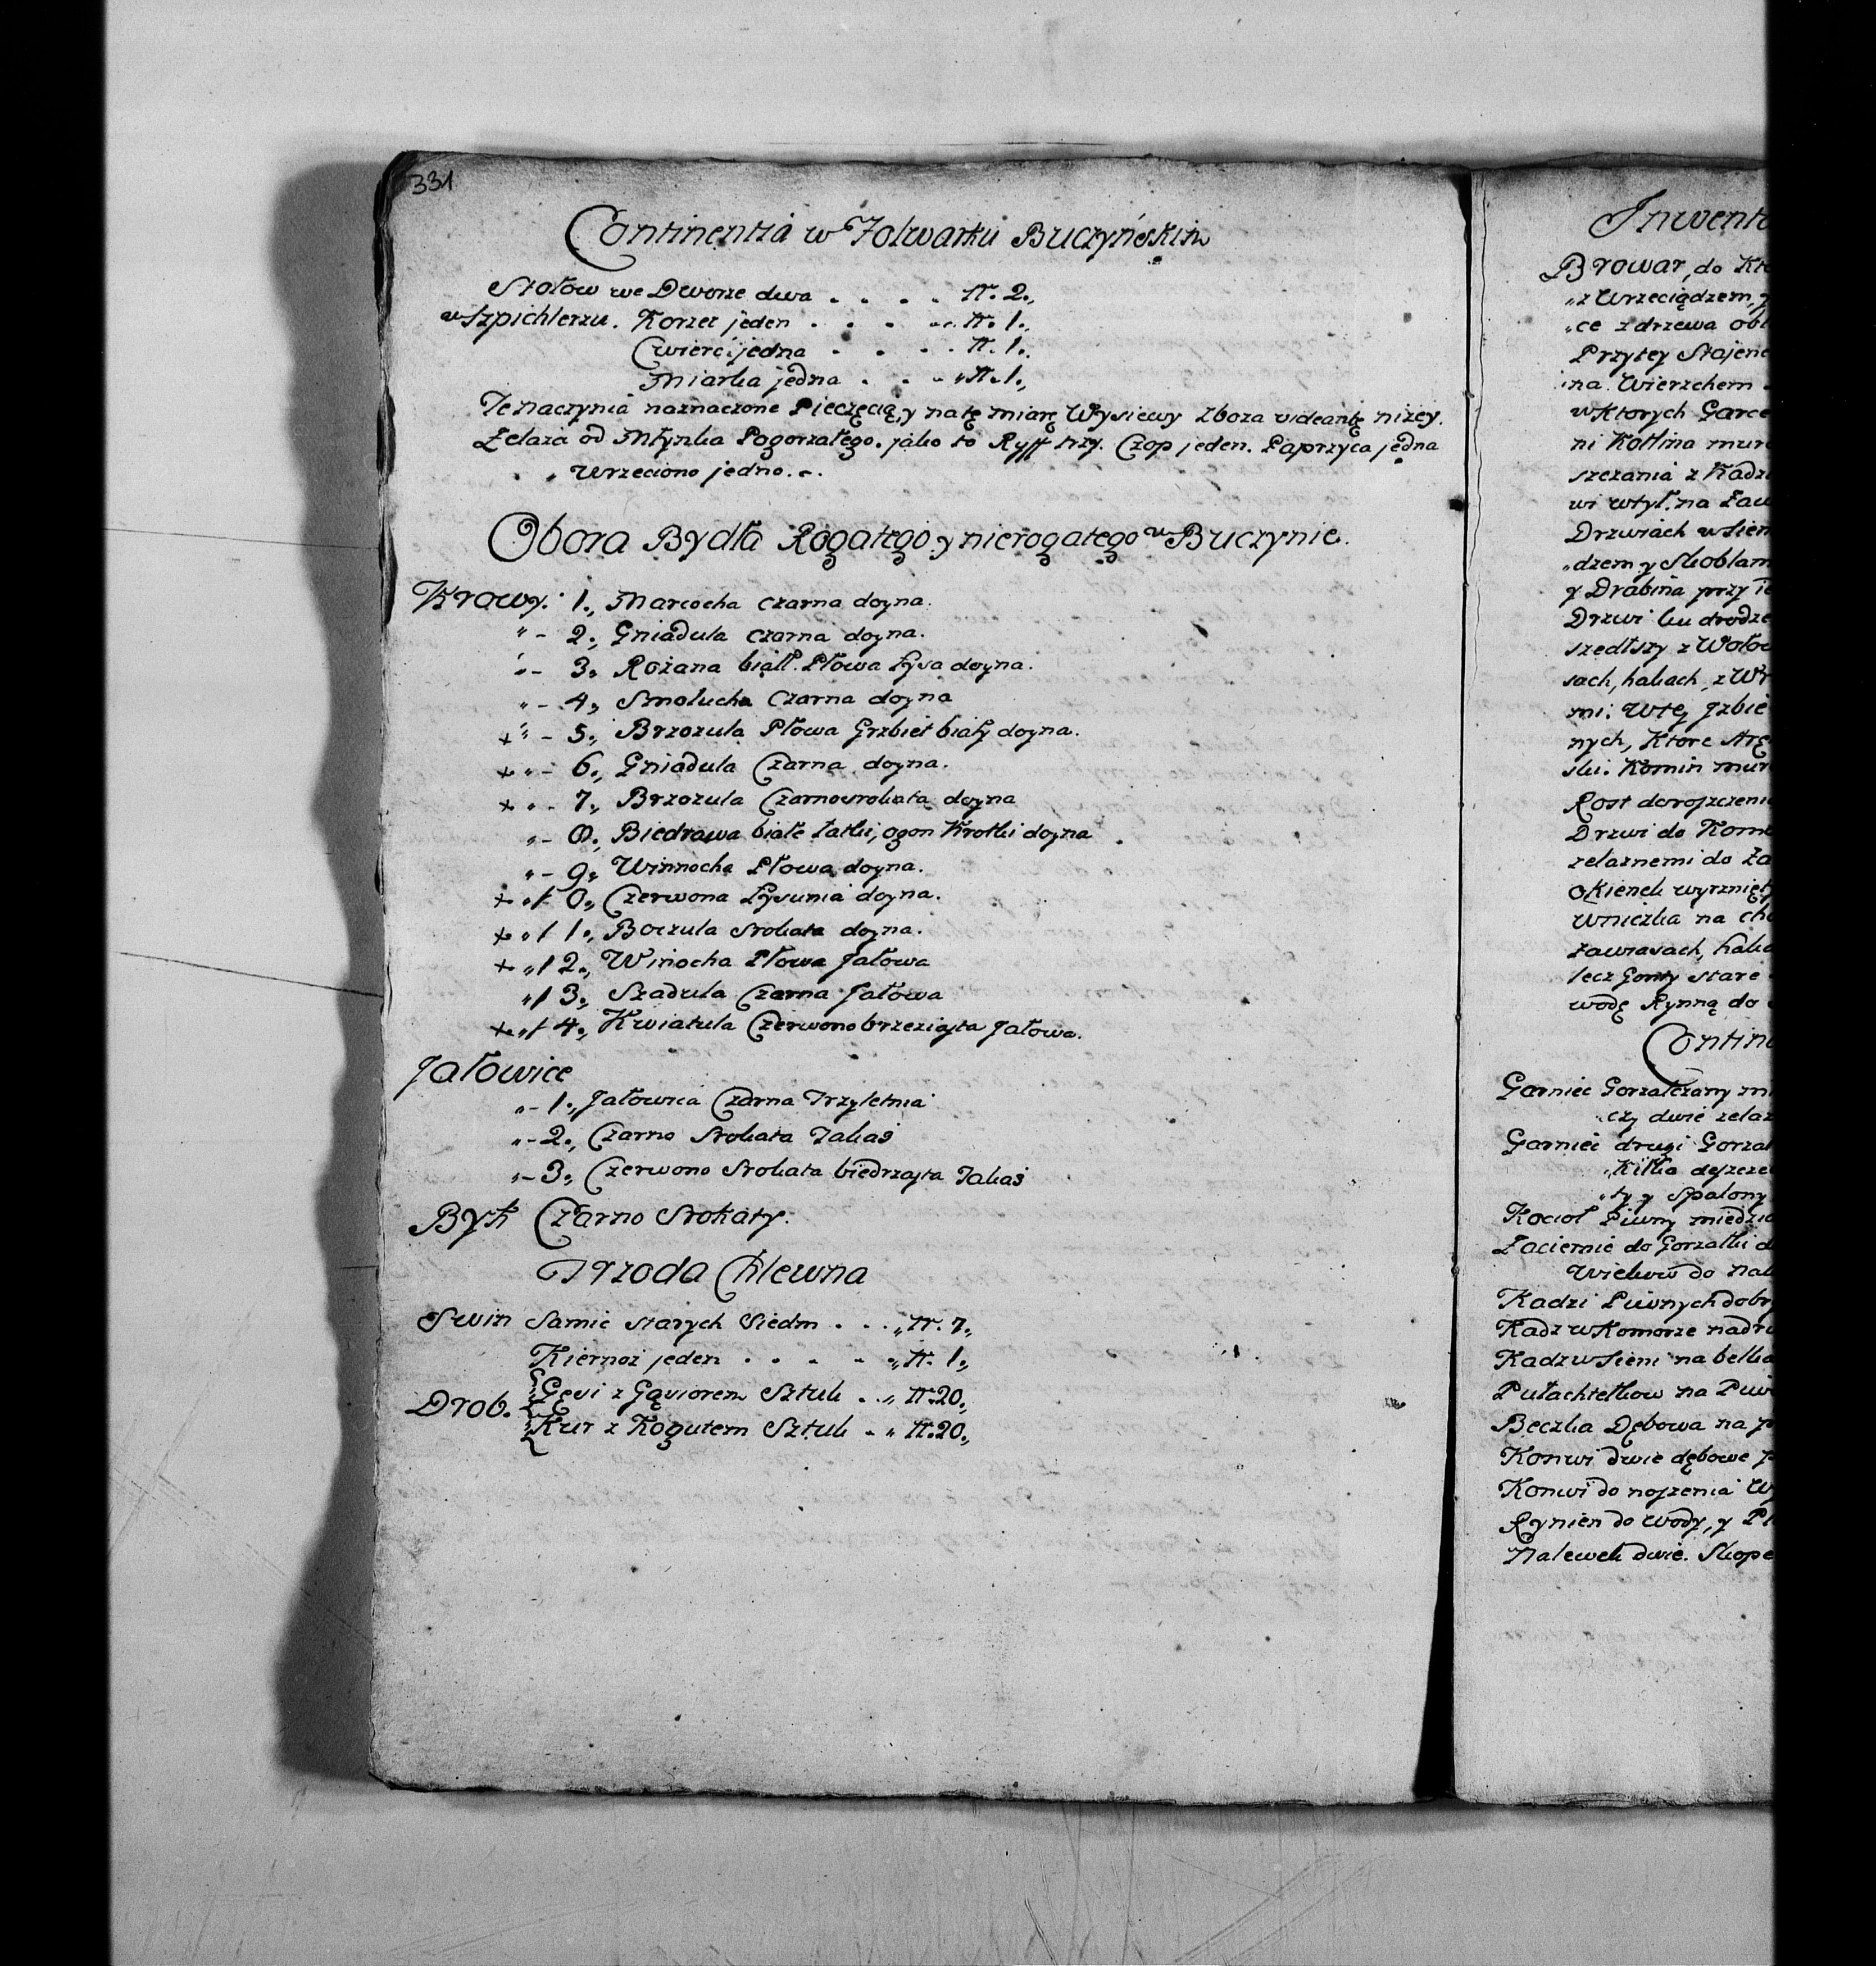 331
Continentia w Folwarku Buczyńskim
Stołow we Dworze dwa . . . . N. 2.,
w Szpichlerzu. Korzec jeden . . . . N. 1.,
Cwierć jedna . . . . N. 1.,
Miarka jedna . . . N. 1.,
Te naczynia naznaczone Pieczęcią, y na tę miarę Wysiewy Zboza videantę nizey.
Zelaza od Młynka Pogorzałego. jako to Ryff trzy. Czop jeden. Paprzyca jedna
Wrzeciono jedno.
Obora Bydła Rogatego y nierogatego w Buczynie.
Krowy. 1., Marcocha czarna doyna.
" - 2., Gniadula czarna doyna.
" - 3., Rożana białł. Płowa Łysa doyna.
" - 4., Smolucha Czarna doyna
+ " - 5., Brzozula Płowa Grzbiet biały doyna.
+ " - 6., Gniadula Czarna doyna.
+ " - 7., Brzozula Czarnosrokata doyna
" - 8., Biedrawa białe łatki, ogon Krotki doyna
" - 9., Winnocha Płowa doyna.
+ " 10., Czerwona Łysunia doyna.
+ " 11., Boczula srokata doyna.
+ " 12., Winocha Płowa Jałowa
" 13., Szadula Czarna Jałowa
+ " 14., Kwiatula Czerwonobrzeziasta Jałowa.
Jałowice
" - 1., Jałowica Czarna Trzyletnia
" - 2., Czarno Srokata Takaś
" - 3., Czerwono Srokata biedrzasta Takaś
Byk Czarno Srokaty.
Trzoda Chlewna
Swin Samic starych Siedm . . . N. 7.,
Kiernoz jeden . . . . N. 1.,
Drob. Gęsi z Gąsiorem Sztuk . . N. 20.,
Kur z Kogutem Sztuk . N. 20.,
Inwent
Browar, do Kto
"z Wrzeciądzem, y
"ce z drzewa obl
Przytey Stajenc
ina Wierzchem
w Ktorych Garce
ni Kotlina muro
szczania z Kadz
wi wtył. na Zaw
Drzwiach w Sien
"dzem y Skoblam
y Drabina przy Te
Drzwi ku drodze
szedłszy z Wołow
sach, hakach, z Wr
mi. Wtey Izbie
nych, Ktore Arę
ski. Komin mur
Rost dorojzczeni
Drzwi do Komo
zelaznemi do Za
okienek wyrznięt
Wniczka na cho
zawiasach, hako
lecz Gonty stare
wodę Rynną do
Contine
Garniec Gorzałczany mi
czy dwie zelaz
Garniec drugi Gorzał
Kilka dejzcze
ty y Spalony
Kocioł Piwny miedzia
Zaciernie do Gorzałki d
Wiekow do nal
Kadzi Piwnych dobry
Kadz w Komorze nadru
Kadz w Sieni na belka
Pułachtelkow na Piwo
Beczka Dębowa na p
Konwi dwie dębowe p
Konwi do nojzenia Wo
Rynien do wody, y Pi
Nalewek dwie. Skope